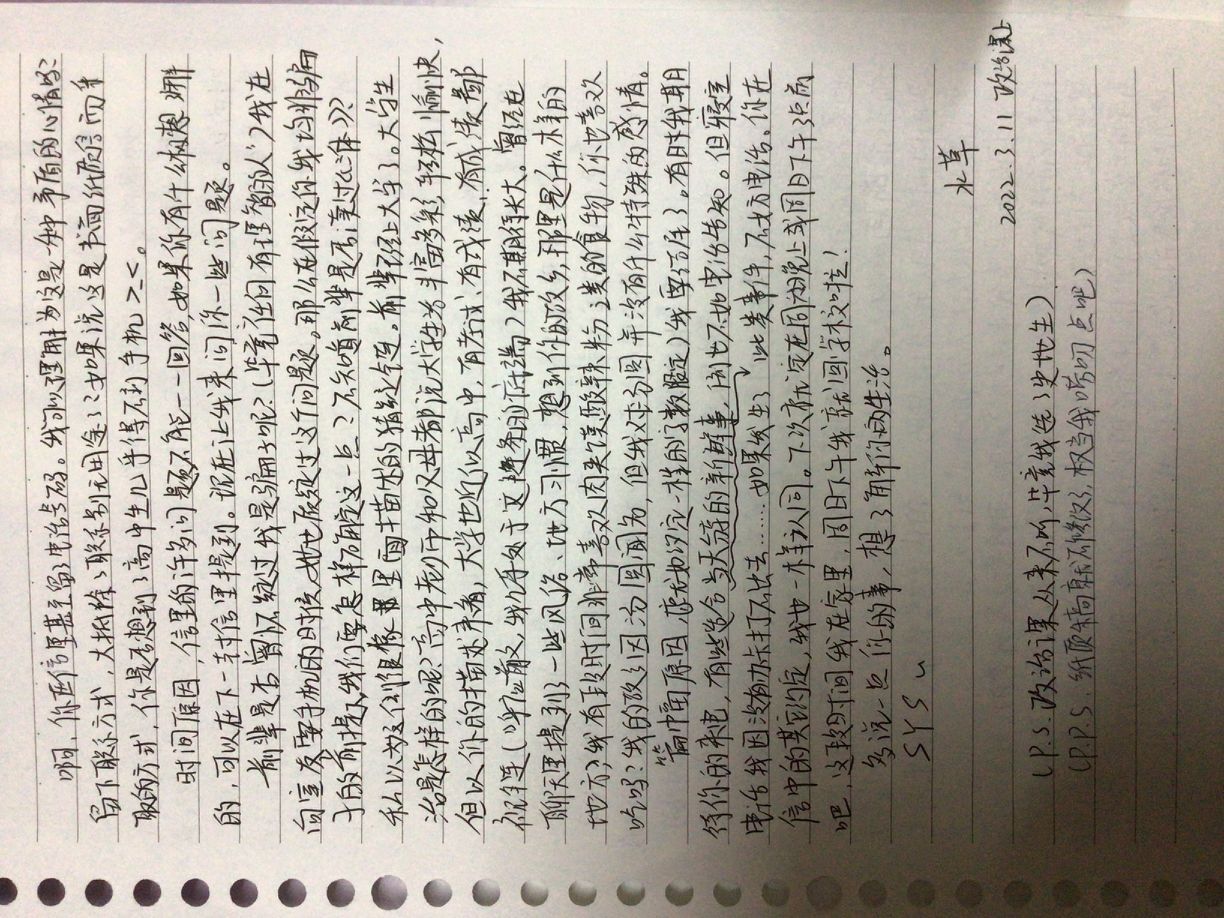 啊，你在信里甚至留了电话号码。我可以理解为这是一种矛盾的心情吗？
留下联系方式，大抵除了联系别无用途了？如果说这是书面纸质信而采
取的方式，你是否想到了高中生几乎得不到手机＞＜。
时间原因，信里的许多问题不能一一回答，如果你有什么极想理解
的，可以在下一封信里提到。现在让我来问你一些问题。
前辈是否曾怀疑过我是骗子呢？（毕竟"任何有理智的人"）我在
向室友要手机的时候，她也质疑过这个问题。那么在假定你我均非骗
子的前提下，我们要怎样确定这一点？不知道前辈是否读过《三体》？
私以为这倒很像里面描述的猜疑链。前辈已经上大学了。大学生
活是怎样的呢？高中老师和父母都说大学生活丰富多彩，轻松愉快，
但以你的描述来看，大学也近似高中，有考试、有成绩、有成绩鄙
视链（呼应前文，我几乎处于这链条的底端）我不期待长大。曾经在
聊天里提到了一些风俗、地方习惯，想到你的故乡，那里是什么样的
地方？我有段时间非常喜欢肉夹馍酸辣粉之类的食物，你也喜欢
吃吗？我的故乡因汤圆闻名，但我对汤圆并没有什么特殊的感情。
篇幅原因，（犹如约定一样的字数限定）我要结尾了。有时我期
待你的来电，有些适合当天分享的新鲜事，倒也不如电话告知。但寝室
电话我因没有办卡打不出去……如果发生了此类事件，不妨电话。你在
信中的其它约定，我也一样认同。下次就定在周六晚上或周日下午3点前
吧，这段时间我在家里，周日下午我就回学校啦！
多说一点你的事，想了解你的生活。
SYSu
水草
2022.3.11 政治课上
（P.S. 政治课从来不听，毕竟我选了史地生）
（P.P.S. 纸质稿就不修改了，权当我唠叨点吧）